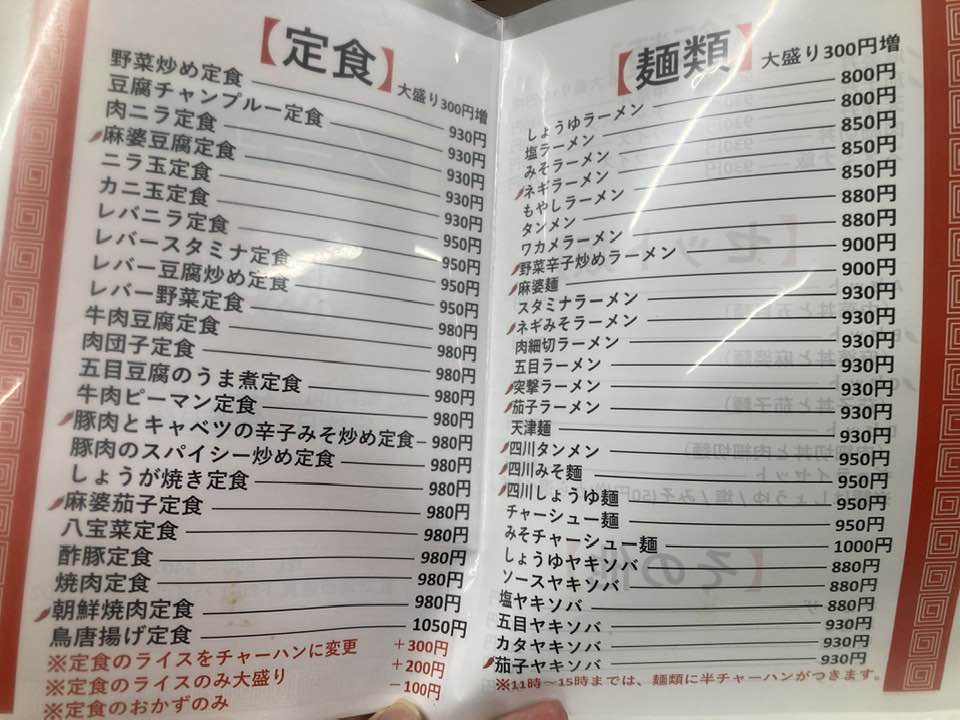 【定食】 大盛り300円増
野菜炒め定食 930円
豆腐チャンプルー定食 930円
肉ニラ定食 930円
麻婆豆腐定食 930円
ニラ玉定食 930円
カニ玉定食 950円
レバニラ定食 950円
レバースタミナ定食 950円
レバー豆腐炒め定食 950円
レバー野菜定食 980円
牛肉豆腐定食 980円
肉団子定食 980円
五目豆腐のうま煮定食 980円
牛肉ピーマン定食 980円
豚肉とキャベツの辛子みそ炒め定食 980円
豚肉のスパイシー炒め定食 980円
しょうが焼き定食 980円
麻婆茄子定食 980円
八宝菜定食 980円
酢豚定食 980円
焼肉定食 980円
朝鮮焼肉定食 980円
鳥唐揚げ定食 1050円
※定食のライスをチャーハンに変更 +300円
※定食のライスのみ大盛り +200円
※定食のおかずのみ -100円
【麺類】 大盛り300円増
しょうゆラーメン 800円
塩ラーメン 800円
みそラーメン 850円
ネギラーメン 850円
もやしラーメン 850円
タンメン 880円
ワカメラーメン 880円
野菜辛子炒めラーメン 900円
麻婆麺 900円
スタミナラーメン 930円
ネギみそラーメン 930円
肉細切ラーメン 930円
五目ラーメン 930円
突撃ラーメン 930円
茄子ラーメン 930円
天津麺 930円
四川タンメン 950円
四川みそ麺 950円
四川しょうゆ麺 950円
チャーシュー麺 950円
みそチャーシュー麺 1000円
しょうゆヤキソバ 880円
ソースヤキソバ 880円
塩ヤキソバ 880円
五目ヤキソバ 930円
カタヤキソバ 930円
茄子ヤキソバ 930円
※11時〜15時までは、麺類に半チャーハンがつきます。